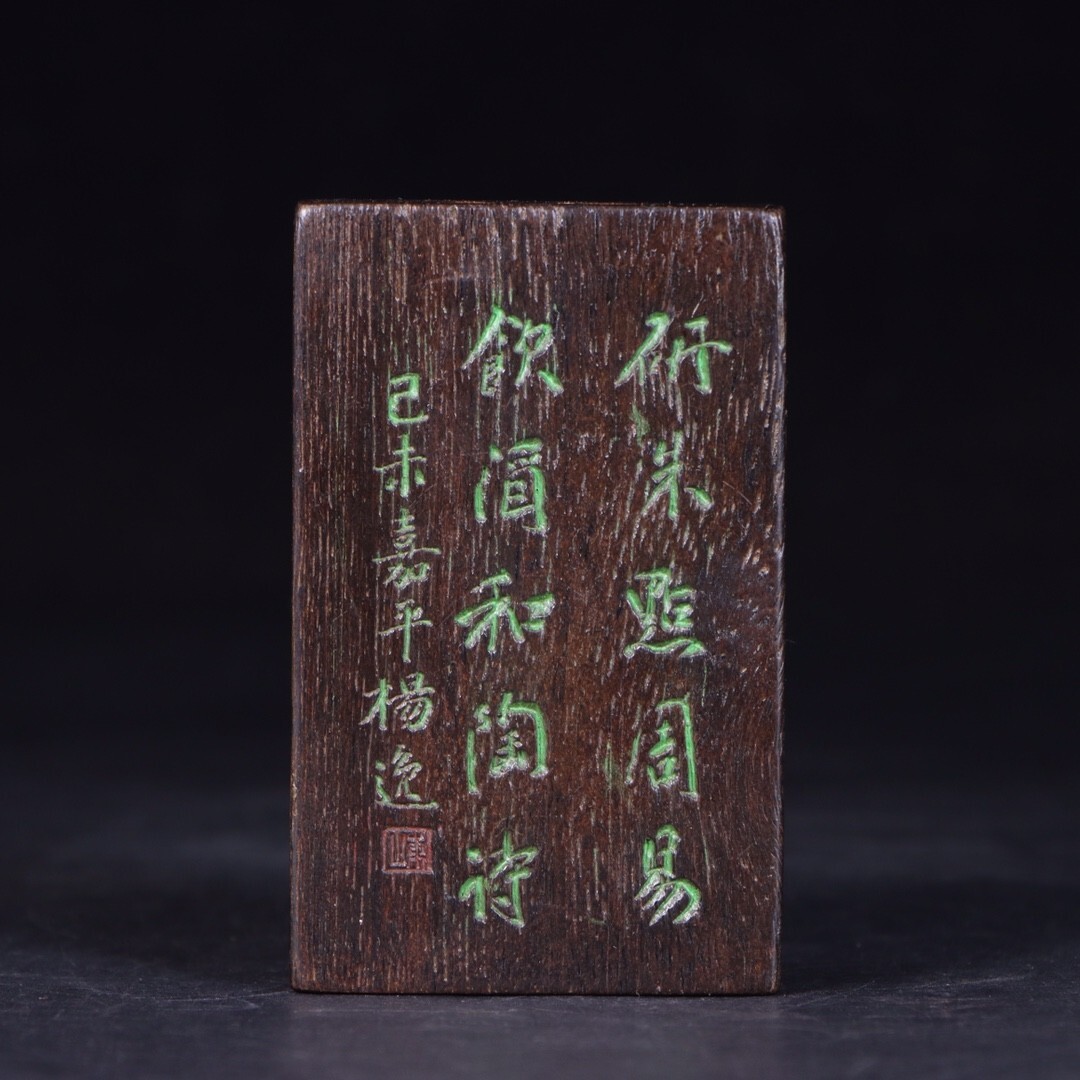 研朱點周易
飲酒和陶詩
己未嘉平楊逸